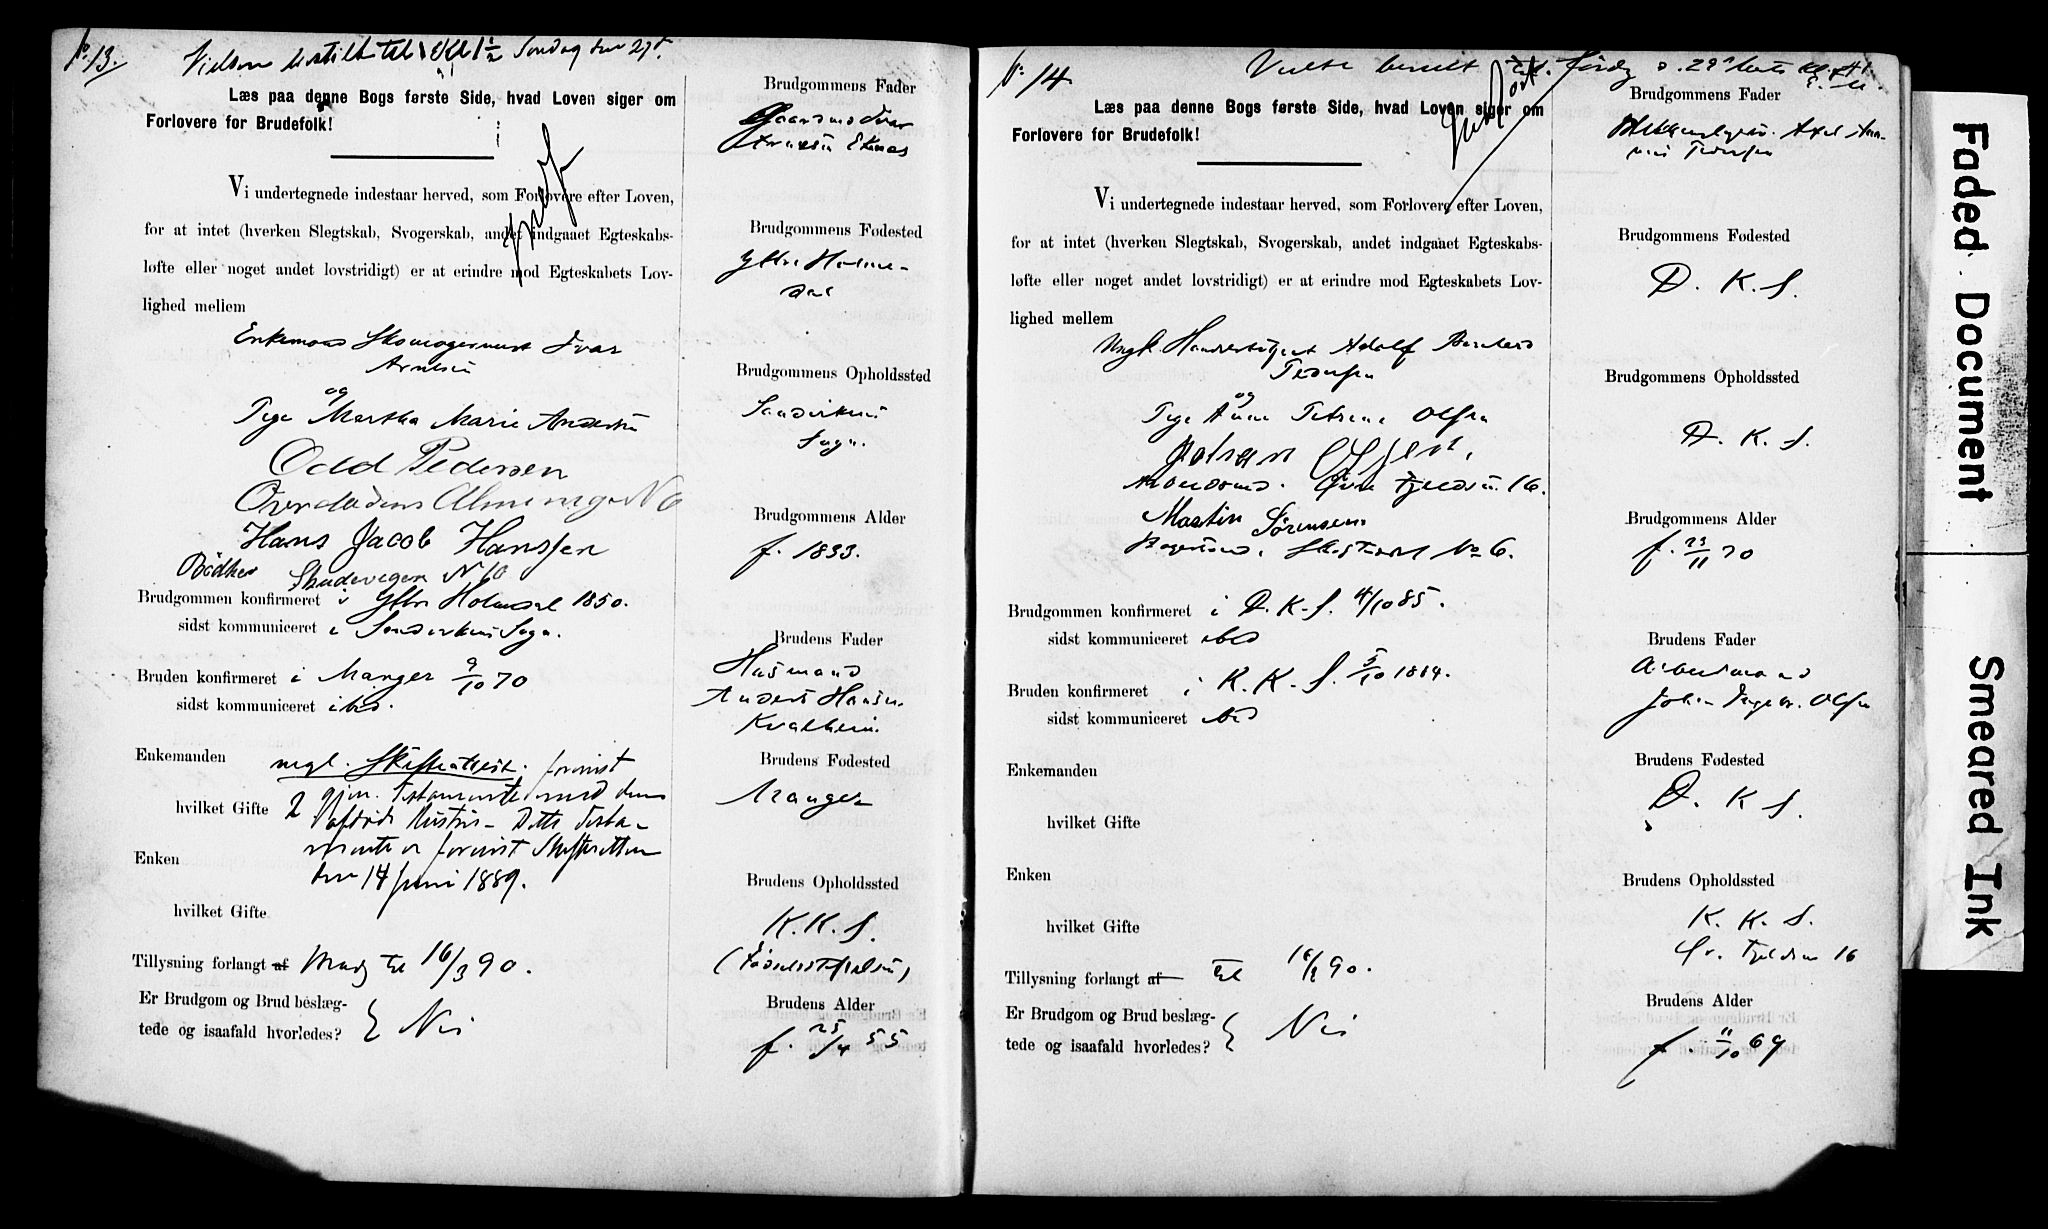 No 13.
Vielsen bestilt til Kl 1 1/2 Søndag den 27.
Læs paa denne Bogs første Side, hvad Loven siger om
Forlovere for Brudefolk!
Vi undertegnede indestaar herved, som Forlovere efter Loven,
for at intet (hverken Slegtskab, Svogerskab, andet indgaaet Egteskabs-
løfte eller noget andet lovstridigt) er at erindre mod Egteskabets Lov-
lighed mellem
Enkemand Skomagermest Ivar
Arnesen
og
Pige Martha Marie Andersen
Odd Pedersen
Hans Jacob Hanssen
Bödker
N 10
Brudgommen konfirmeret i Yttre Holmedal 1850.
sidst kommuniceret i Sandvikens Sogn.
Bruden konfirmeret i Manger 9/10 70
sidst kommuniceret ibid.
Enkemanden mgl. Skifteattest. forevist
hvilket Gifte 2 gjen. Testamente med den
afdøde Hustru. Dette Testa-
mente er forevist Skifteretten
den 14 Juni 1889.
Enken
hvilket Gifte
Tillysning forlangt af Mundtl. til 16/3 90.
Er Brudgom og Brud beslæg-
tede og isaafald hvorledes? } Nei
Brudgommens Fader
Gaardmd Ivar
Brudgommens Fødested
Yttre Holme-
dal
Brudgommens Opholdssted
Sandvikens
Sogn.
Brudgommens Alder
f. 1833.
Brudens Fader
Husmand
Anders Hansen
Kvalheim.
Brudens Fødested
Manger
Brudens Opholdssted
K. K. S.
Brudens Alder
f. 25/4 55
No 14
Læs paa denne Bogs første Side, hvad Loven siger om
Forlovere for Brudefolk!
Vi undertegnede indestaar herved, som Forlovere efter Loven,
for at intet (hverken Slegtskab, Svogerskab, andet indgaaet Egteskabs-
løfte eller noget andet lovstridigt) er at erindre mod Egteskabets Lov-
lighed mellem
Ungk. Adolf
Pedersen
og
Pige Anne Petrine Olsen
Johan
Arbeidsmd. Øvre 16.
Martin Sørensen
No 6.
Brudgommen konfirmeret i D. K. S. 4/10 85.
sidst kommuniceret ibid
Bruden konfirmeret i K. K. S. 5/10 1884.
sidst kommuniceret ibid
Enkemanden
hvilket Gifte
Enken
hvilket Gifte
Tillysning forlangt af til 16/3 90.
Er Brudgom og Brud beslæg-
tede og isaafald hvorledes? } Nei
Brudgommens Fader
Axel
Pedersen
Brudgommens Fødested
D. K. S.
Brudgommens Opholdssted
D. K. S.
Brudgommens Alder
f. 23/11 70
Brudens Fader
Arbeidsmand
Johan Olsen
Brudens Fødested
D. K. S.
Brudens Opholdssted
K. K. S.
16
Brudens Alder
f. 11/10 69
Faded Document
Smeared Ink